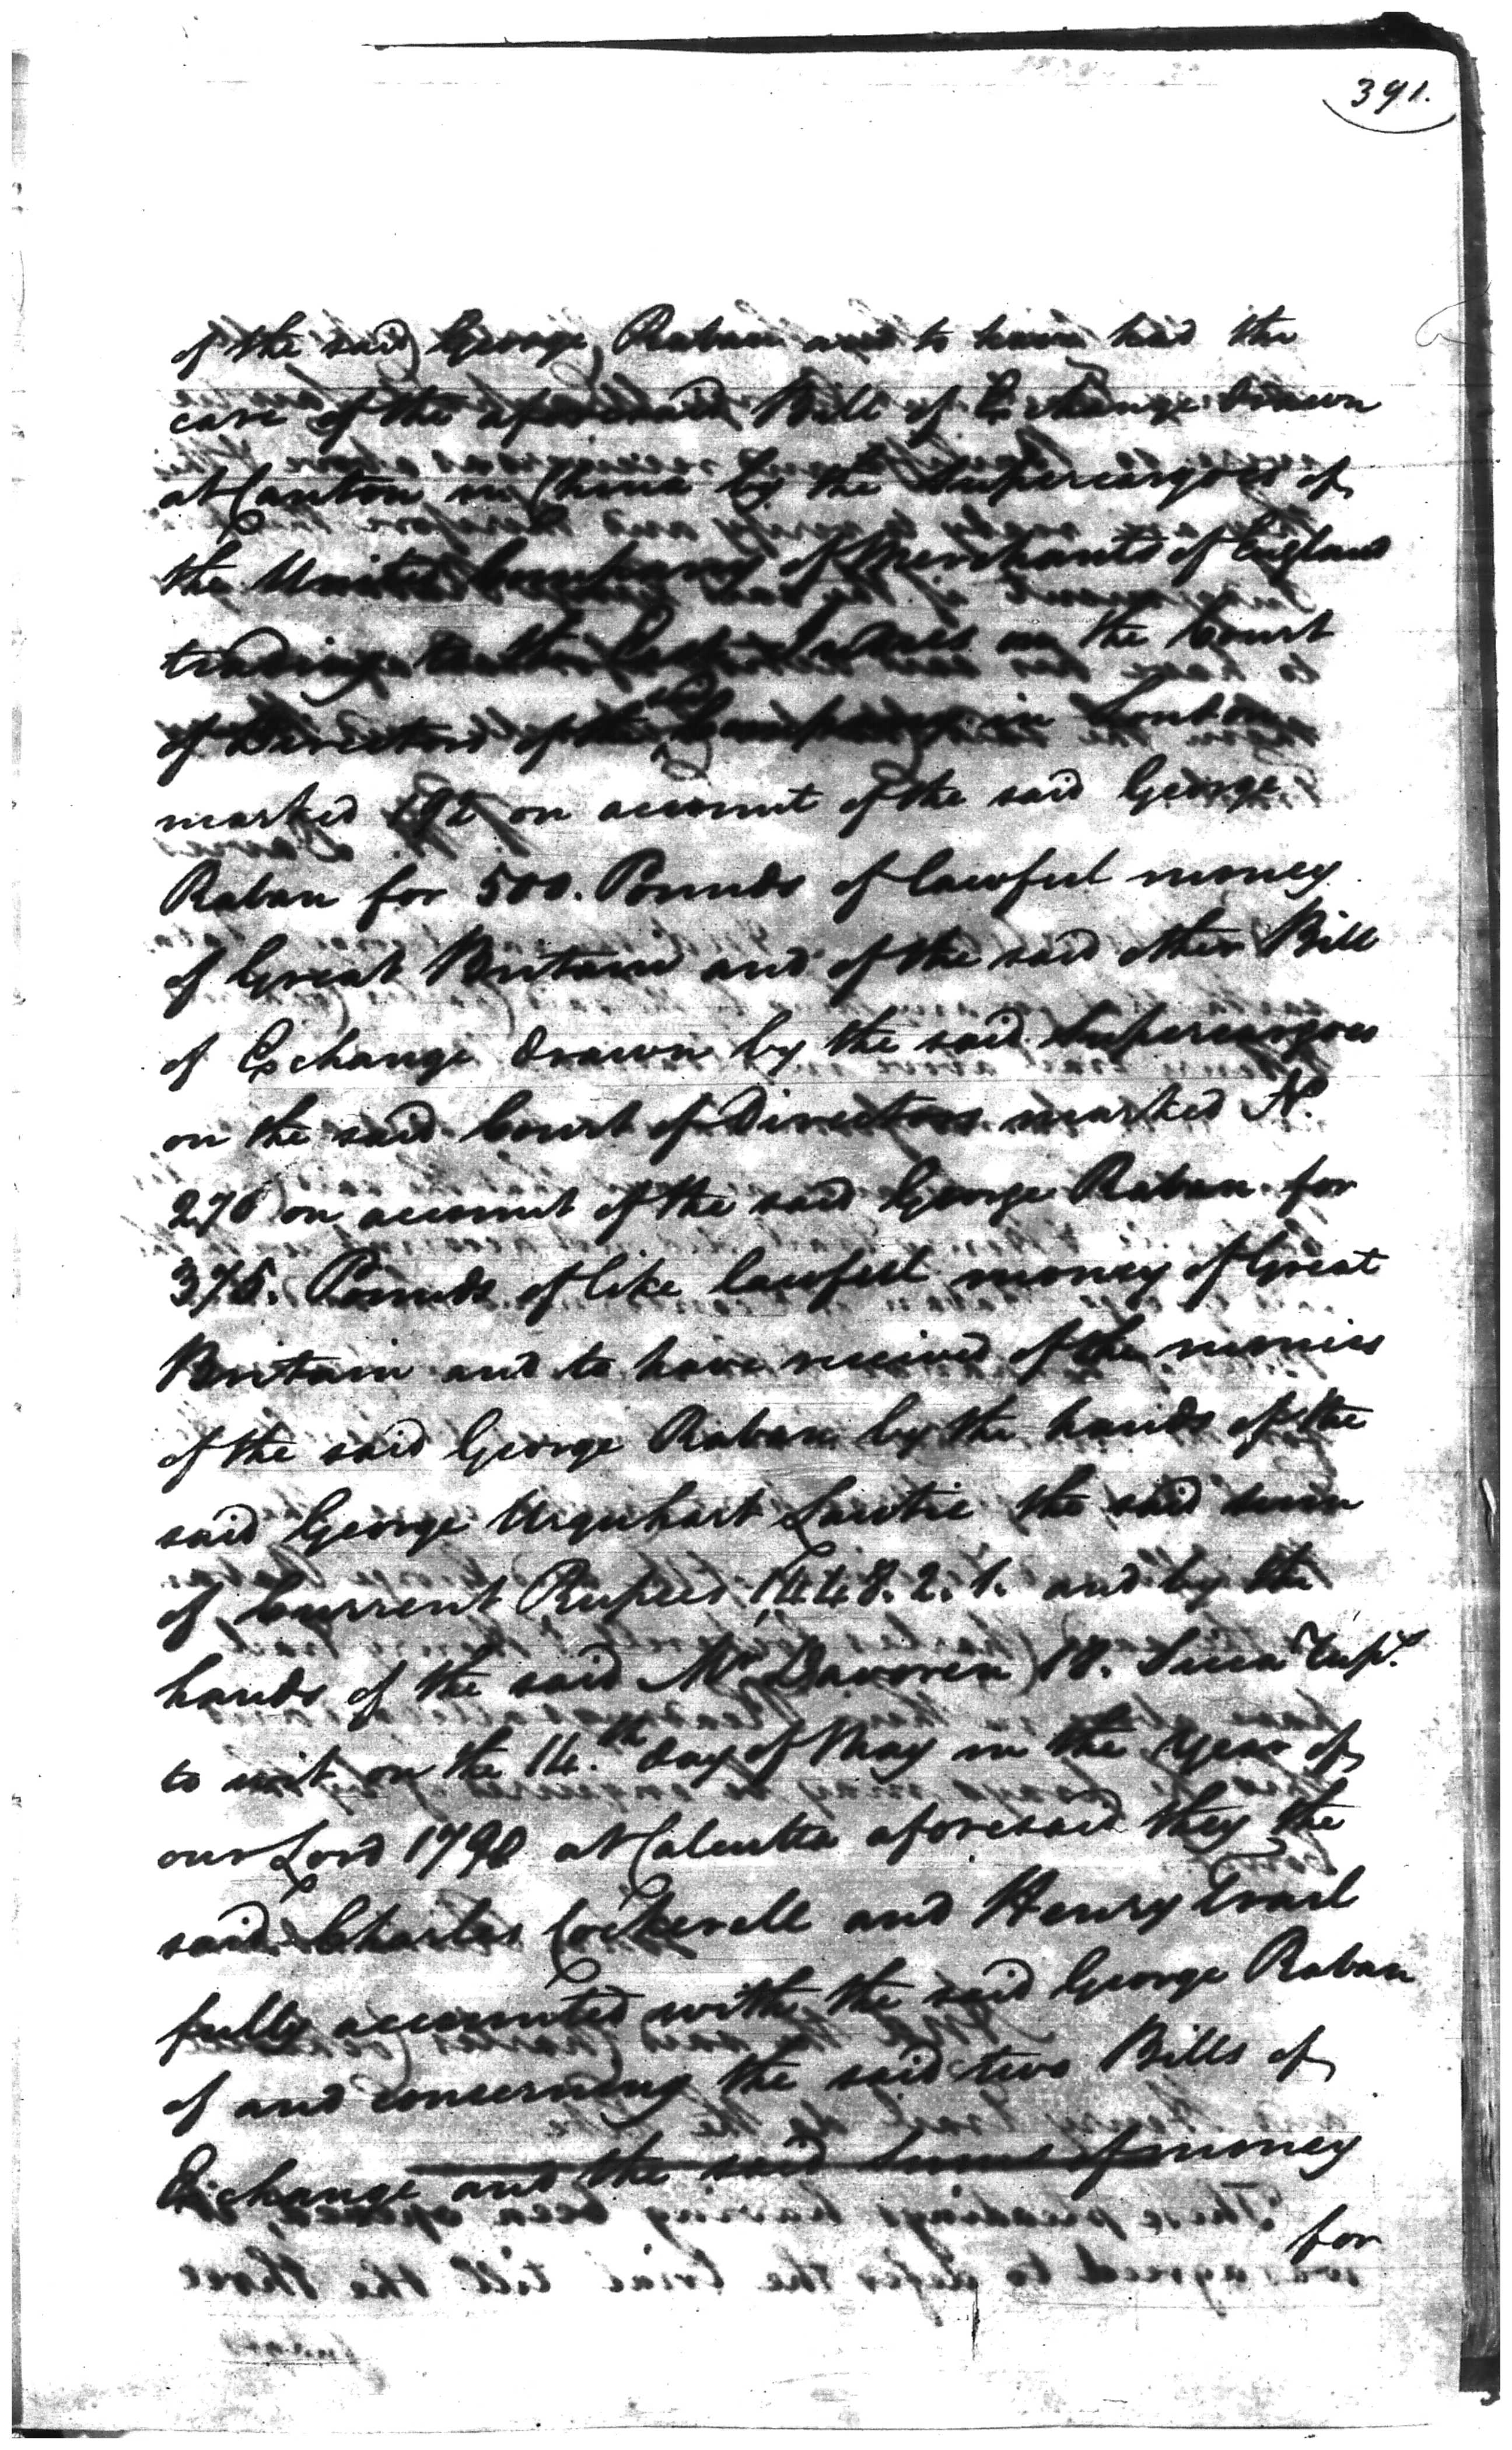 391.
of the said George Raban and to have had the
care of the aforesaid Bill of Exchange drawn
at Canton in China by the Supercargoes of
the United Company of Merchants of England
trading to the East Indies on the Court
of Directors of the said Company in London
marked 192 on account of the said George
Raban for 500. Pounds of lawful money
of Great Britain and of the said other Bill
of Exchange drawn by the said Supercargoes
on the said Court of Directors marked No.
270 on account of the said George Raban for
375. Pounds of like lawful money of Great
Britain and to have received of the monies
of the said George Raban by the hands of the
said George Urquhart Lawtie the said sum
of Current Rupees 1448.2.1. and by the
hands of the said Mr Davoren 18. Sicca Rups.
to wit on the 14.th day of May in the year of
our Lord 1798 at Calcutta aforesaid they the
said Charles Cockerell and Henry Trail
fully accounted with the said George Raban
of and concerning the said two Bills of
Exchange and the said Sums of money
for